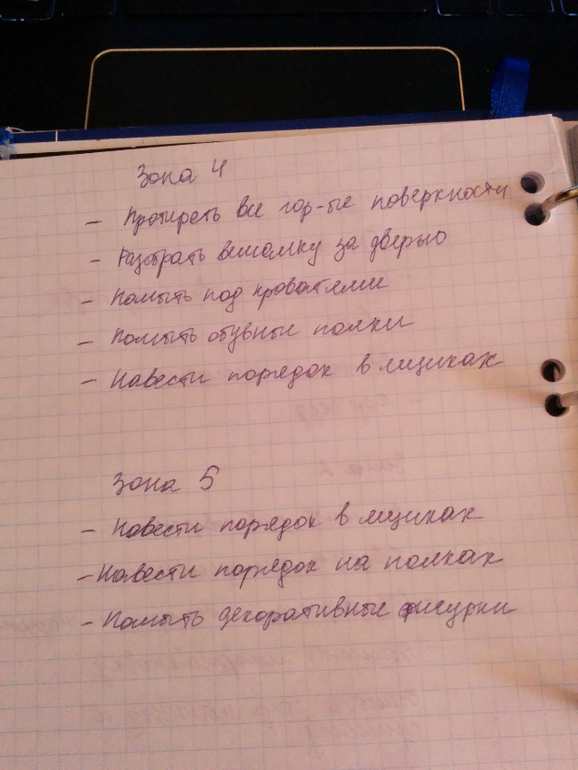 Зона 4
- Протереть все гор-ые поверхности
- Разобрать вешалку за дверью
- Помыть под кроватями
- Помыть обувные полки
- Навести порядок в ящиках
Зона 5
- Навести порядок в ящиках
- Навести порядок на полках
- Помыть декоративные фигурки